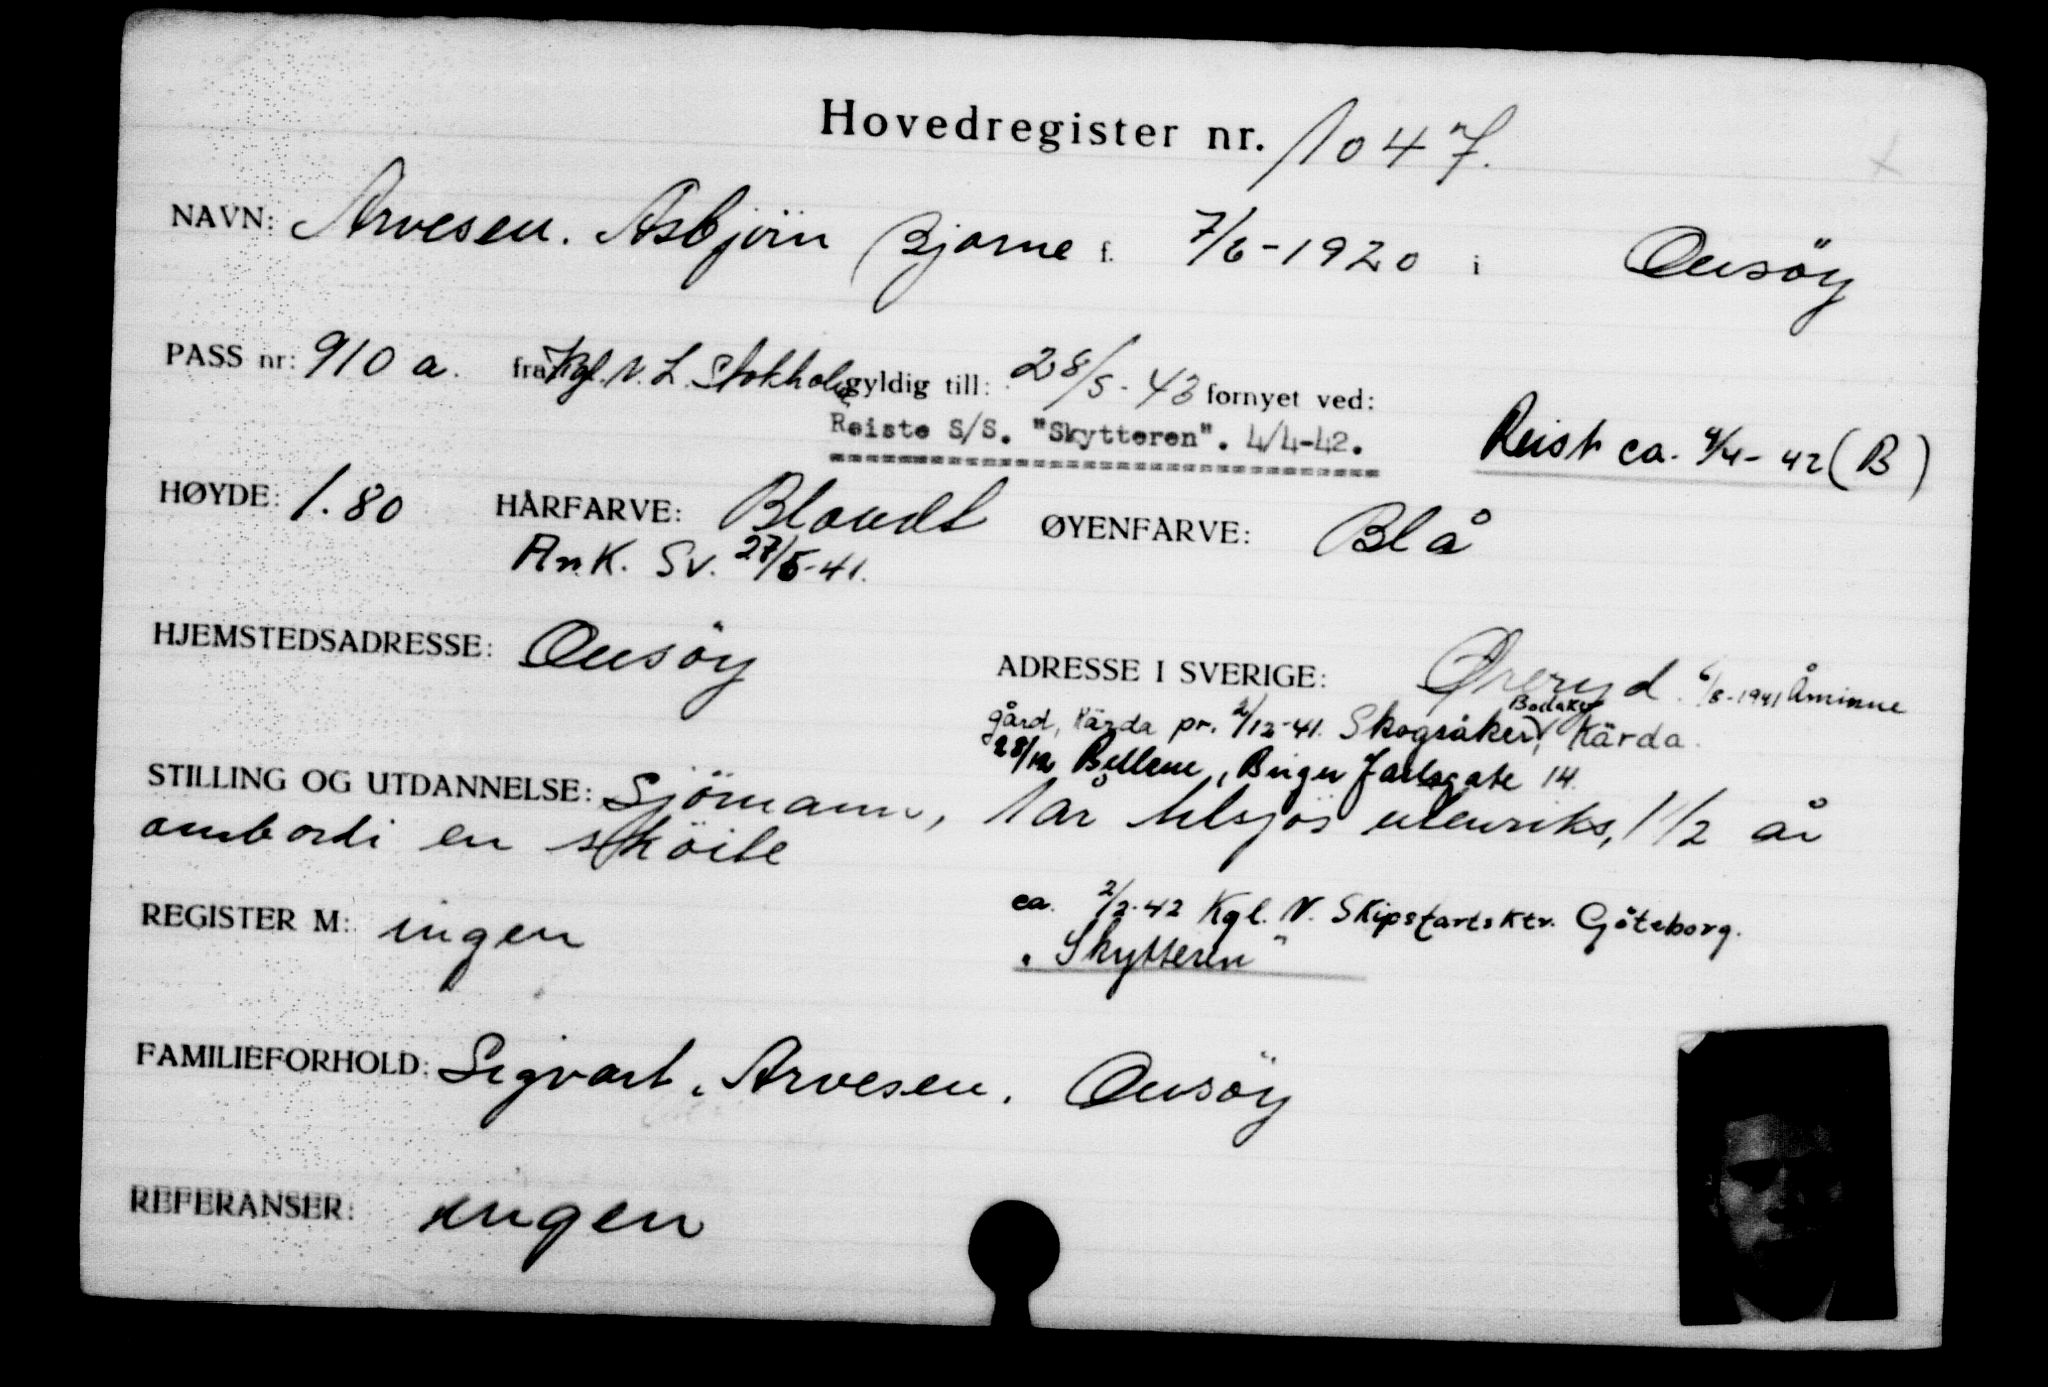 Hovedregister nr. 1047.
NAVN: Arvesen. Asbjörn Bjarne f. 7/6-1920 i Onsöy
PASS nr: 910 a. fra Kgl. N. L. Stokholm gyldig till: 28/5-43 fornyet ved:
Reiste S/S. "Skytteren". 4/4-42. Reist ca. 4/4-42 (B)
HØYDE: 1.80 HÅRFARVE: Blondt ØYENFARVE: Blå
Ank. Sv. 27/5-41.
HJEMSTEDSADRESSE: Onsöy
ADRESSE I SVERIGE: Øreryd. 6/8-1941 Åminne
gård, Kärda pr. 2/12-41. Skogsåker, Kärda.
28/12 Birger Jarlsgate 14.
STILLING OG UTDANNELSE: Sjömann, 1 år tilsjös utenriks, 1 1/2 år
ombord i en sköite
REGISTER M: ingen
ca. 2/2-42 Kgl. N. Skipsfartsktr. Göteborg.
"Skytteren"
FAMILIEFORHOLD: Sigvart. Arvesen. Onsöy
REFERANSER: ingen